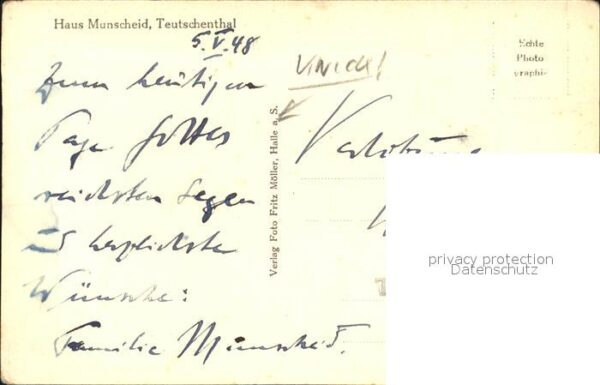 Haus Munscheid, Teutschenthal
5.V.48
Zum heutigen
Tage Gottes
reichsten Segen
und herzlichste
Wünsche:
Familie Munscheid.
Verlag Foto Fritz Möller, Halle a. S.
Echte
Photo
graphie
privacy protection
Datenschutz